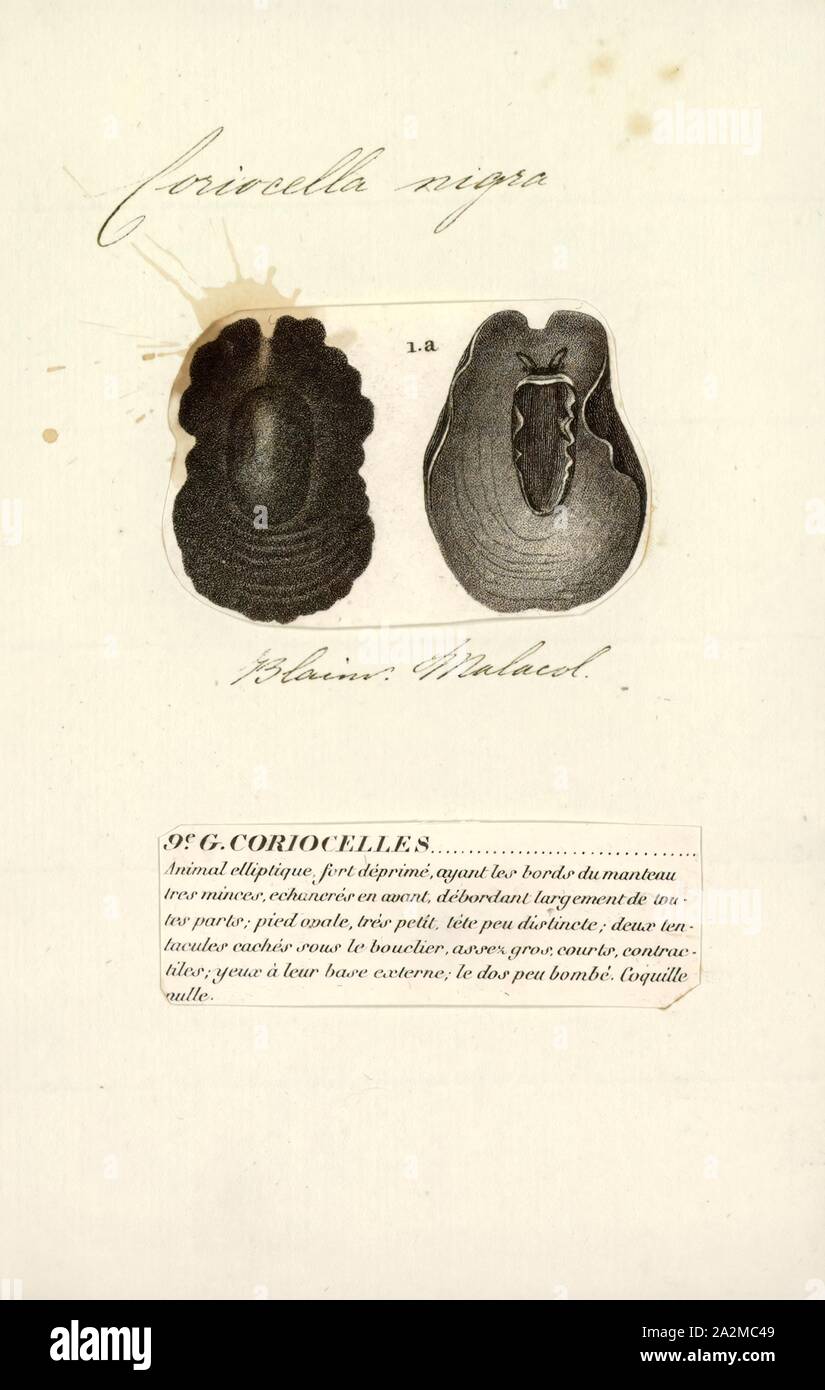 Coriocella nigra
1.a
Blainv. Malacol.
9.e G. CORIOCELLES
Animal elliptique, fort déprimé, ayant les bords du manteau
tres minces, echancrés en avant, débordant largement de tou-
tes parts; pied ovale, trés petit, tête peu distincte; deux ten-
tacules cachés sous le bouclier, assez gros, courts, contrac-
tiles; yeux à leur base externe; le dos peu bombé. Coquille
nulle.
alamy
alamy
Image ID: A2MC49
www.alamy.com